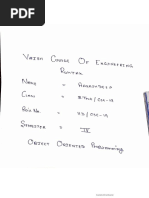 Vaish College Of Engineering
Rohtak
Name =
Class = BTech / CSE-A
Roll No. = / CSE-A
Semester = IV
Object Oriented Programming